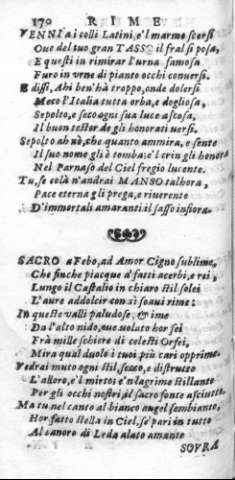 170 RIME
VENNI a i colli Latini, e'l marmo scorsi
Oue del tuo gran TASSO il fral si posa,
E questi in rimirar l'urna famosa
Furo in vrne di pianto occhi conuersi.
E dissi, Ahi ben'hà troppo, onde dolersi
Meco l'Italia tutta orba, e dogliosa,
Sepolto, e seco ogni sua luce ascosa,
Il buon testor de gli honorati uersi.
Sepolto ah nò, che quanto ammira, e sente
Il suo nome gli è tomba: e'l crin gli honora
Nel Parnaso del Ciel fregio lucente.
Tu, se colà n'andrai MANSO talhora,
Pace eterna gli prega, e riuerente
D'immortali amaranti il sasso infiora.
SACRO a Febo, ad Amor Cigno sublime,
Che finche piacque a' fatti acerbi, e rei,
Lungo il Castalio in chiaro stil solei
L'aure addolcir con sì soaui rime:
In queste valli paludose, & ime
Da l'alto nido, oue uolato hor sei
Frà mille schiere di celesti Orfei,
Mira qual duolo i tuoi più cari opprime.
Vedrai muto ogni stil, secco, e distrutto
L'alloro, e'l mirto: e'n lagrime stillante
Per gli occhi nostri, il sacro fonte asciutto.
Ma tu nel canto al bianco augel sembiante,
Hor fatto stella in Ciel, se' pari in tutto
Al canoro di Leda alato amante
SOVRA